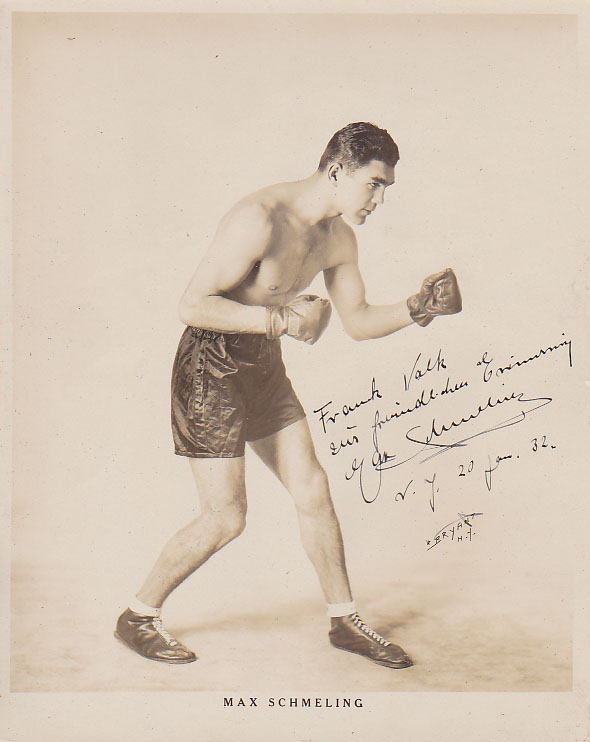 Frank Valk
zur freundlichen Erinnerung
Max Schmeling
N. Y. 20 Jan. 32.
BRYANT
N.Y.
MAX SCHMELING